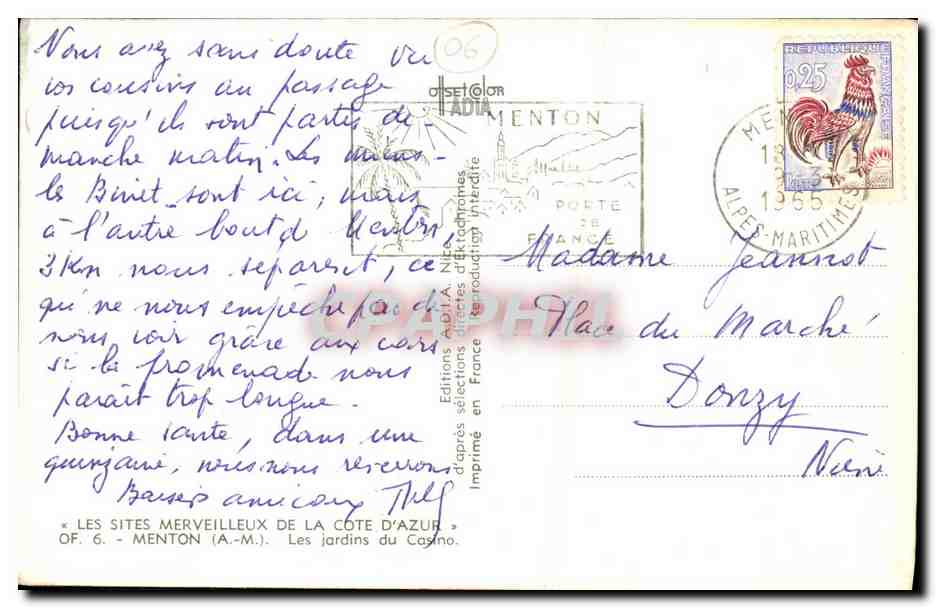 Vous avez sans doute vu
vos cousins au passage
puisqu'ils sont partis di-
manche matin. Les
les Binet sont ici, mais
à l'autre bout d Menton,
3 Km nous séparent, ce
qui ne nous empêche pas de
nous voir grâce aux cars
si la promenade nous
parait trop longue.
Bonne santé, dans une
quinzaine, nous nous reverrons
Baisers amicaux
« LES SITES MERVEILLEUX DE LA COTE D'AZUR »
OF. 6. - MENTON (A.-M.). Les jardins du Casino.
06
offset color
ADIA
MENTON
PORTE
DE
FRANCE
Editions A.D.I.A. Nice
d'après sélections directes d'Ektachromes
Imprimé en France Reproduction interdite
CPAPHIL
REPUBLIQUE FRANÇAISE
0,25
1965
ALPES-MARITIMES
Madame Jeannot
Place du Marché
Donzy
Nièvre